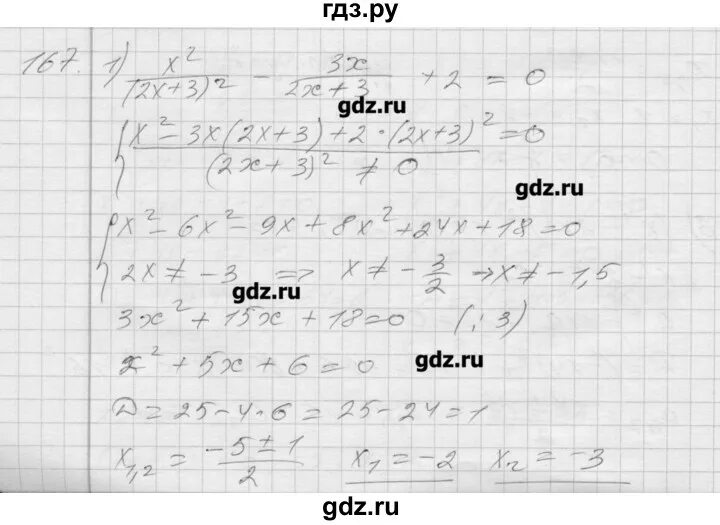 гдз.ру
167. 1) x²/(2x+3)² - 3x/(2x+3) + 2 = 0
gdz.ru
{ (x² - 3x(2x+3) + 2·(2x+3)²)/((2x+3)² ≠ 0) = 0
gdz.ru
{ x² - 6x² - 9x + 8x² + 24x + 18 = 0
2x ≠ -3 => x ≠ -3/2 → x ≠ -1,5
gdz.ru
3x² + 15x + 18 = 0 (: 3)
x² + 5x + 6 = 0
gdz.ru
D = 25 - 4·6 = 25 - 24 = 1
x₁,₂ = (-5 ± 1)/2 x₁ = -2 x₂ = -3
gdz.ru